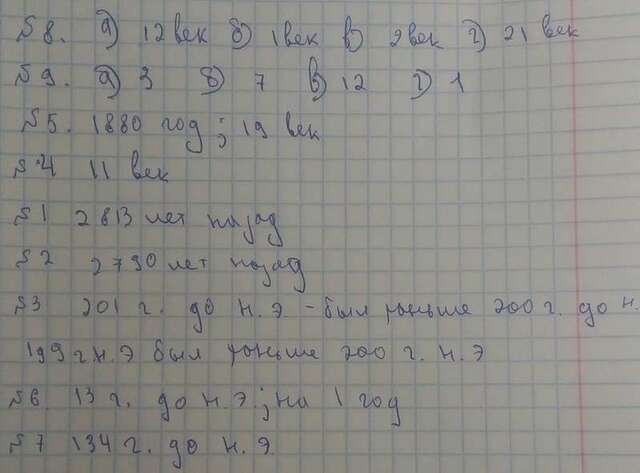 №8. а) 12 век б) 1 век в) 2 век г) 21 век
№9. а) 3 б) 7 в) 12 г) 1
№5. 1880 год; 19 век
№4 11 век
№1 2813 лет назад
№2 2790 лет назад
№3 201 г. до н. э - был раньше 200 г. до н.
199 г н. э был раньше 200 г. н. э
№6. 13 г. до н. э.; на 1 год
№7 134 г. до н. э